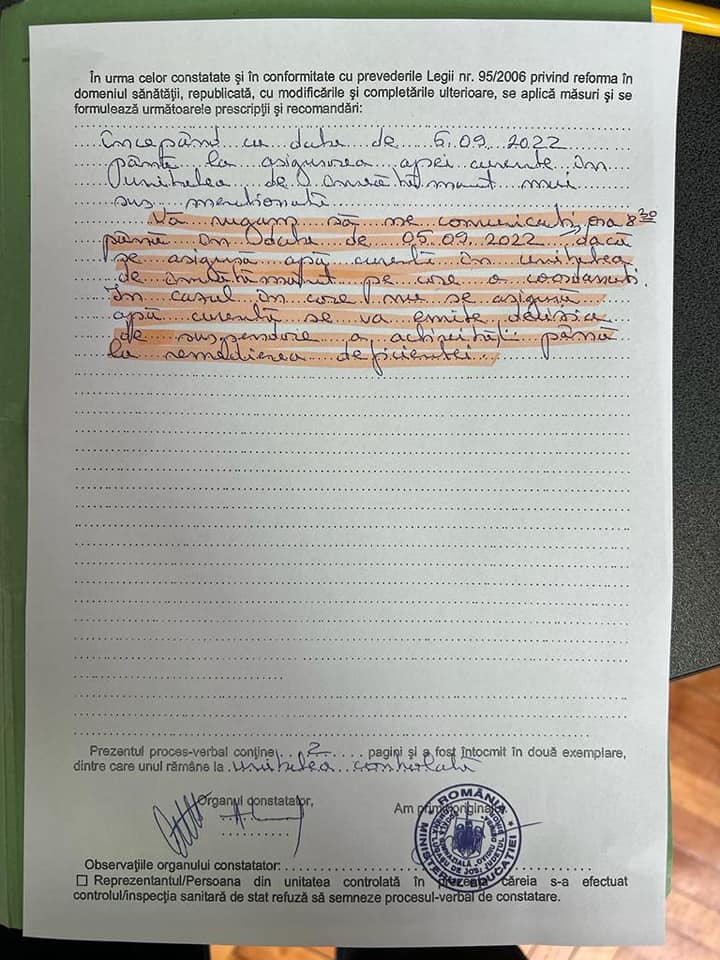 În urma celor constatate şi în conformitate cu prevederile Legii nr. 95/2006 privind reforma în
domeniul sănătăţii, republicată, cu modificările şi completările ulterioare, se aplică măsuri şi se
formulează următoarele prescripţii şi recomandări:
Începând cu data de 6.09.2022
până la asigurarea apei curente în
unitatea de învăţământ mai
sus menţionată.
Vă rugăm să ne comunicaţi, ora 8³⁰
până în data de 05.09.2022 dacă
se asigură apă curentă în unitatea
de învăţământ pe care o coordonaţi.
În cazul în care nu se asigură
apă curentă se va emite decizia
de suspendare a activităţii până
la remedierea deficienţei.
Prezentul proces-verbal conţine 2 pagini şi a fost întocmit în două exemplare,
dintre care unul rămâne la unitatea controlată
Organul constatator,
Am primit originalul
ROMÂNIA
MINISTERUL EDUCAŢIEI
Observaţiile organului constatator:
☐ Reprezentantul/Persoana din unitatea controlată în căreia s-a efectuat
controlul/inspecţia sanitară de stat refuză să semneze procesul-verbal de constatare.